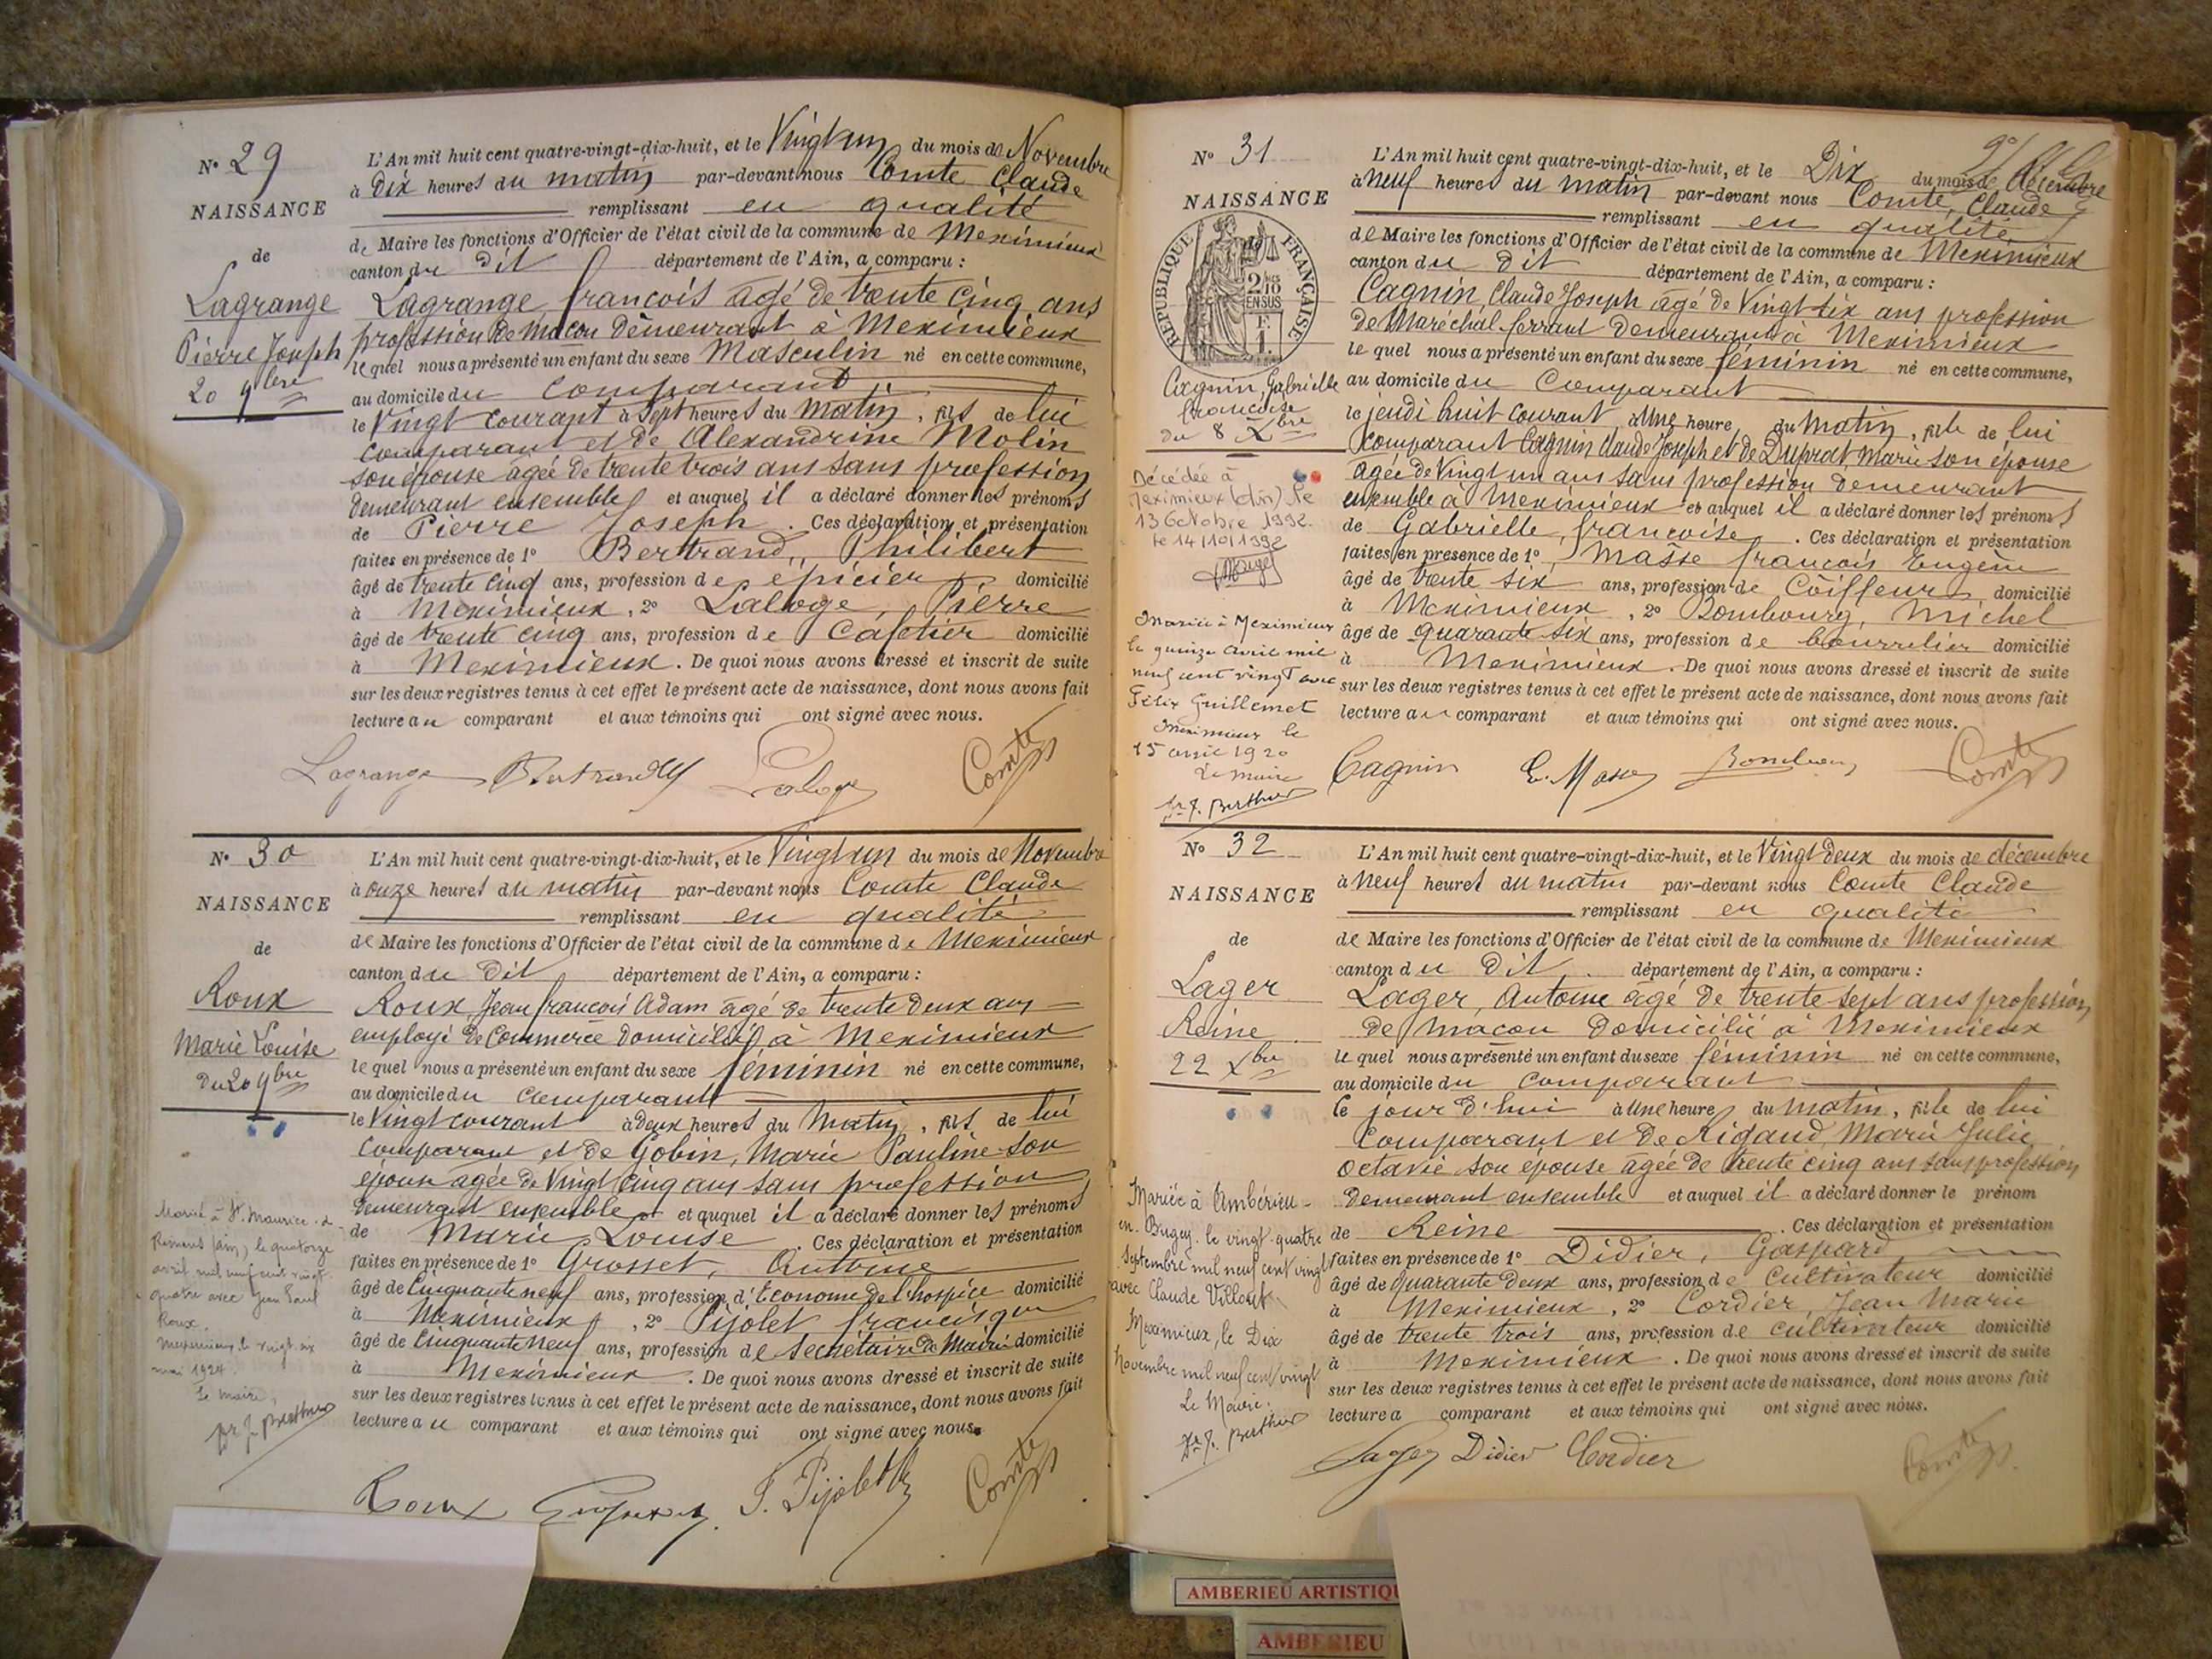 N° 29
NAISSANCE
de
Lagrange
Pierre Joseph
20 9bre
L'An mil huit cent quatre-vingt-dix-huit, et le Vingt un du mois de Novembre
à Dix heures du matin par-devant nous Comte Claude
remplissant en qualité
de Maire les fonctions d'Officier de l'état civil de la commune de Meximieux
canton du Dit département de l'Ain, a comparu :
Lagrange, françois âgé de trente cinq ans
profession de maçon demeurant à Meximieux
lequel nous a présenté un enfant du sexe Masculin né en cette commune,
au domicile du comparant
le Vingt courant à Sept heures du matin, fils de lui
comparant et de Alexandrine Molin
son épouse agée de trente trois ans sans profession
demeurant ensemble et auquel il a déclaré donner les prénoms
de Pierre Joseph. Ces déclaration et présentation
faites en présence de 1° Bertrand, Philibert
âgé de trente cinq ans, profession de épicier domicilié
à Meximieux, 2° Laloge, Pierre
âgé de trente cinq ans, profession de Cafetier domicilié
à Meximieux. De quoi nous avons dressé et inscrit de suite
sur les deux registres tenus à cet effet le présent acte de naissance, dont nous avons fait
lecture au comparant et aux témoins qui ont signé avec nous.
Lagrange Bertrand Laloge Comte
N° 30
NAISSANCE
de
Roux
Marie Louise
du 20 9bre
L'An mil huit cent quatre-vingt-dix-huit, et le Vingt un du mois de Novembre
à onze heures du matin par-devant nous Comte Claude
remplissant en qualité
de Maire les fonctions d'Officier de l'état civil de la commune de Meximieux
canton du Dit département de l'Ain, a comparu :
Roux, Jean françois Adam âgé de trente deux ans
employé de commerce domicilié à Meximieux
lequel nous a présenté un enfant du sexe féminin né en cette commune,
au domicile du comparant
le Vingt courant à deux heures du Matin, fils de lui
comparant et de Gobin, Marie Pauline son
épouse agée de Vingt cinq ans sans profession
demeurant ensemble et auquel il a déclaré donner les prénoms
de Marie Louise. Ces déclaration et présentation
faites en présence de 1° Grosset, Antoine
âgé de Cinquante neuf ans, profession d'Econome de l'hospice domicilié
à Meximieux, 2° Pijolet francisque
âgé de Cinquante neuf ans, profession de Secrétaire de Mairie domicilié
à Meximieux. De quoi nous avons dressé et inscrit de suite
sur les deux registres tenus à cet effet le présent acte de naissance, dont nous avons fait
lecture au comparant et aux témoins qui ont signé avec nous.
Mariée à St. Maurice-de-
Remens (Ain), le quatorze
avril mil neuf cent vingt-
quatre avec Jean Paul
Roux.
Meximieux, le vingt-six
mai 1924.
Le maire,
Berthier
Roux F. Pijolet Comte
N° 31
NAISSANCE
RÉPUBLIQUE FRANÇAISE
2/10
EN SUS
F.
1.
Cagnin, Gabrielle
françoise
du 8 Xbre
L'An mil huit cent quatre-vingt-dix-huit, et le Dix du mois de décembre
à Neuf heures du matin par-devant nous Comte, Claude
remplissant en qualité
de Maire les fonctions d'Officier de l'état civil de la commune de Meximieux
canton du Dit département de l'Ain, a comparu :
Cagnin, Claude Joseph âgé de Vingt six ans profession
de Maréchal ferrant demeurant à Meximieux
lequel nous a présenté un enfant du sexe féminin né en cette commune,
au domicile du comparant
le jeudi huit courant, à Une heure du matin, fille de lui
comparant Cagnin Claude Joseph et de Duprat, Marie son épouse
agée de Vingt un ans sans profession demeurant
ensemble à Meximieux et auquel il a déclaré donner les prénoms
de Gabrielle, françoise. Ces déclaration et présentation
faites en présence de 1° Masse françois Eugène
âgé de trente six ans, profession de Coiffeur domicilié
à Meximieux, 2° Bombourg, Michel
âgé de Quarante Six ans, profession de bourrelier domicilié
à Meximieux. De quoi nous avons dressé et inscrit de suite
sur les deux registres tenus à cet effet le présent acte de naissance, dont nous avons fait
lecture au comparant et aux témoins qui ont signé avec nous.
Décédée à
Meximieux (Ain) le
13 Octobre 1992.
le 14/10/1992
Mariée à Meximieux
le quinze avril mil
neuf cent vingt avec
Félix Guillemet
Meximieux le
15 avril 1920
Le maire
Berthier
Cagnin E. Masse Comte
N° 32
NAISSANCE
de
Lager
Reine
22 Xbre
L'An mil huit cent quatre-vingt-dix-huit, et le Vingt deux du mois de décembre
à Neuf heures du matin par-devant nous Comte Claude
remplissant en qualité
de Maire les fonctions d'Officier de l'état civil de la commune de Meximieux
canton du Dit département de l'Ain, a comparu :
Lager, Antoine âgé de trente sept ans profession
de maçon domicilié à Meximieux
lequel nous a présenté un enfant du sexe féminin né en cette commune,
au domicile du comparant
le jour d'hui à Une heure du matin, fille de lui
comparant et de Rigaud, Marie Julie
octavie son épouse âgée de trente cinq ans sans profession
demeurant ensemble et auquel il a déclaré donner le prénom
de Reine. Ces déclaration et présentation
faites en présence de 1° Didier, Gaspard
âgé de Quarante deux ans, profession de Cultivateur domicilié
à Meximieux, 2° Cordier, Jean Marie
âgé de trente trois ans, profession de cultivateur domicilié
à Meximieux. De quoi nous avons dressé et inscrit de suite
sur les deux registres tenus à cet effet le présent acte de naissance, dont nous avons fait
lecture a comparant et aux témoins qui ont signé avec nous.
Mariée à Ambérieu-
en-Bugey, le vingt-quatre
Septembre mil neuf cent vingt
avec Claude
Meximieux, le Dix
Novembre mil neuf cent vingt
Le Maire.
Berthier
Lager Didier Cordier Comte
AMBERIEU ARTISTIQU
AMBERIEU